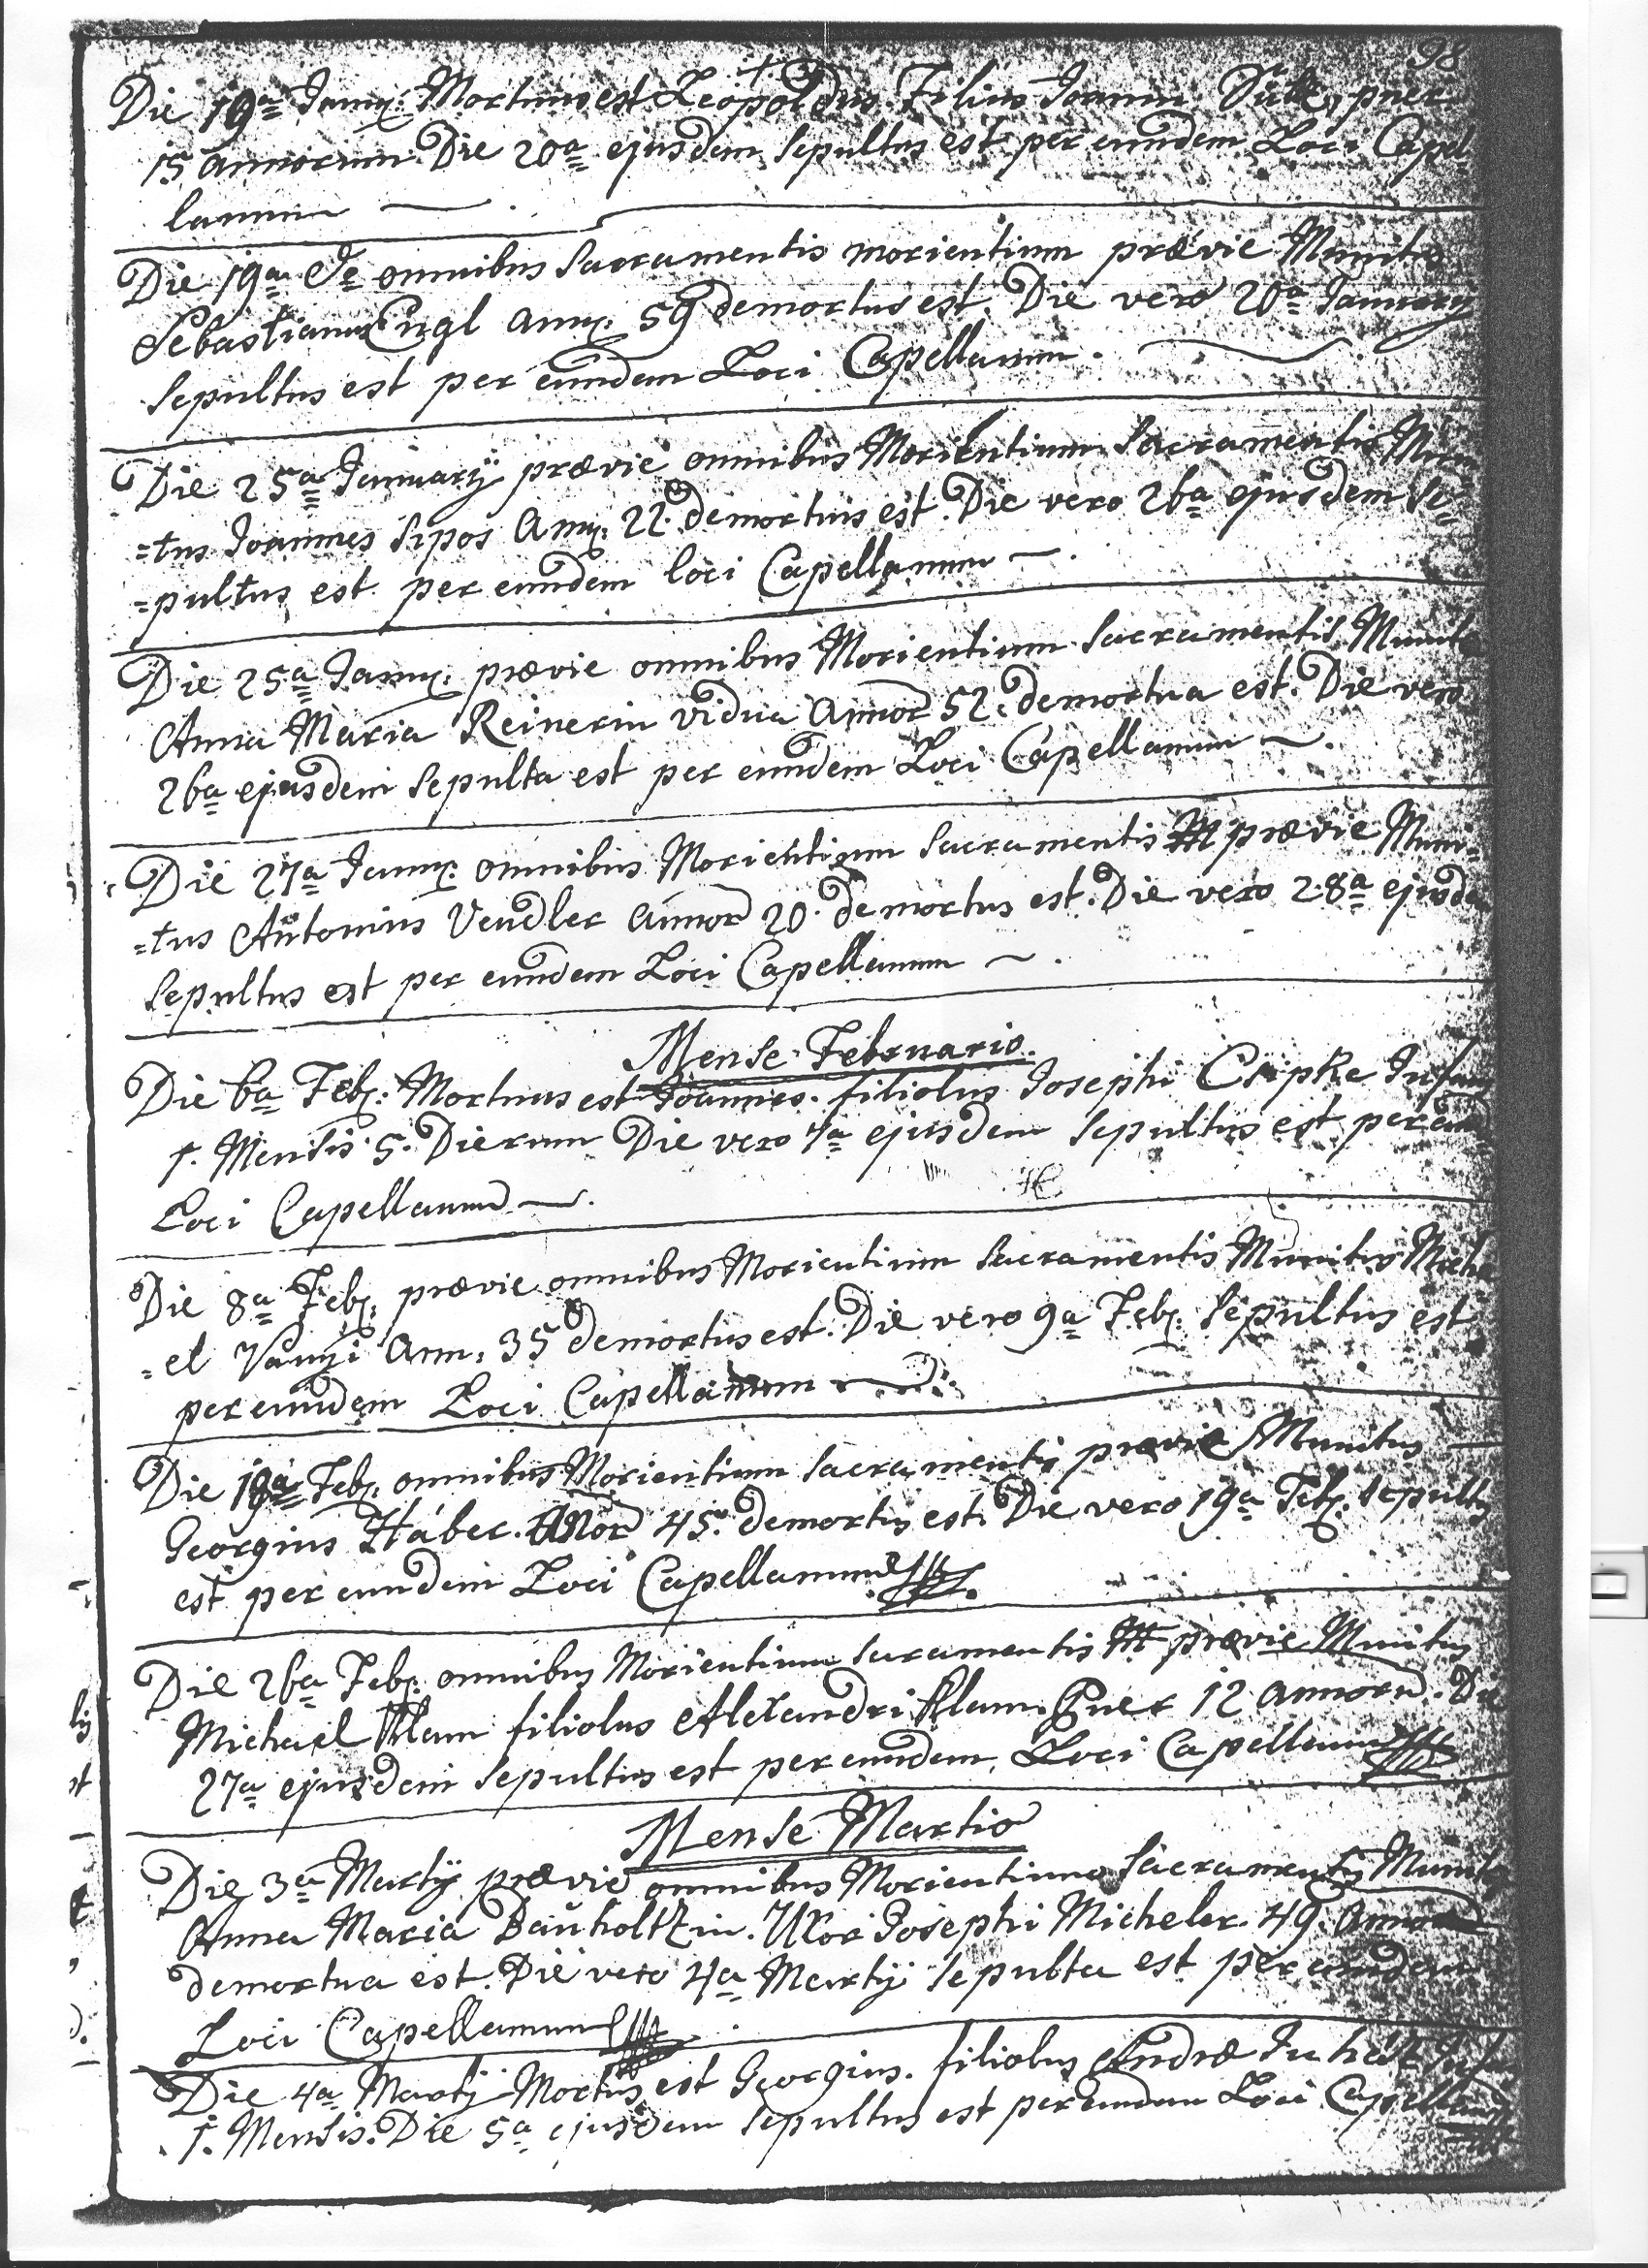 98
Die 19a Januy: Mortuus est Leopoldus Filius Joannis puer
15 annorum. Die 20a ejusdem sepultus est per eundem Loci Capel-
lanum
Die 19a omnibus Sacramentis morientium prævie Munitus
Sebastianus Engl Anny. 59 demortus est. Die vero 20a January
Sepultus est per eundem Loci Capellanum.
Die 25a January prævie omnibus Morientium Sacramentis Muni
=tus Joannes Sipos Anny. 22. demortuus est. Die vero 26a ejusdem Se=
=pultus est per eundem loci Capellanum
Die 25a Januy. prævie omnibus Morientium Sacramentis Munita
Anna Maria Reinerin vidua Annor 52. demortua est. Die vero
26a ejusdem Sepulta est per eundem Loci Capellanum
Die 27a Januy. omnibus Morientium Sacramentis prævie Muni=
=tus Antonius Vendler Annor 20. demortus est. Die vero 28a ejusdem
Sepultus est per eundem Loci Capellanum
Mense Februario.
Die 6a Feby: Mortuus est Joannes. filiolus Josephi Csipke Infans
1. Mensis 5. Dierum Die vero 7a ejusdem Sepultus est per eund
Loci Capellanum
Die 8a Feby. prævie omnibus Morientium Sacramentis Munitus Micha
=el Vanyi Ann. 35 demortus est. Die vero 9a Feby. Sepultus est
per eundem Loci Capellanum
Die 18a Feby. omnibus Morientium Sacramentis prævie Munitus
Georgius Háber. Anor 45. demortus est. Die vero 19a Feby. Sepultus
est per eundem Loci Capellanum
Die 26a Feby. omnibus Morientium Sacramentis prævie Munitus
Michael Klam filiolus Alexandri Klam. Puer 12 annoru. Die
27a ejusdem Sepultus est per eundem Loci Capellanum
Mense Martio
Die 3a Martij prævie omnibus Morientium Sacramentis Munita
Anna Maria Bauholtzin. Uxor Josephi Micheler. 49. Annor
demortua est. Die vero 4a Martij Sepulta est per eundem
Loci Capellanum
Die 4a Martij Mortus est Georgius. filiolus Andræ Juhász Infans
1. Mensis. Die 5a ejusdem Sepultus est per eundem Loci Capellanum